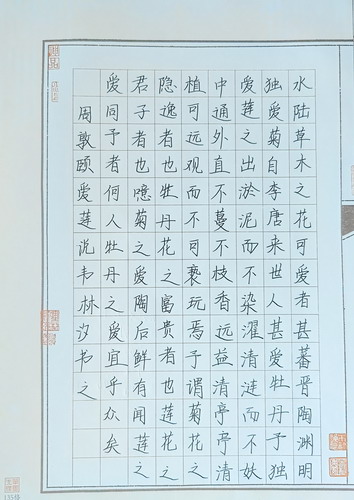 水陆草木之花可爱者甚蕃晋陶渊明
独爱菊自李唐来世人甚爱牡丹予独
爱莲之出淤泥而不染濯清涟而不妖
中通外直不蔓不枝香远益清亭亭清
植可远观而不可亵玩焉予谓菊花之
隐逸者也牡丹花之富贵者也莲花之
君子者也噫菊之爱陶后鲜有闻莲之
爱同予者何人牡丹之爱宜乎众矣
周敦颐爱莲说韦林汐书之
135格